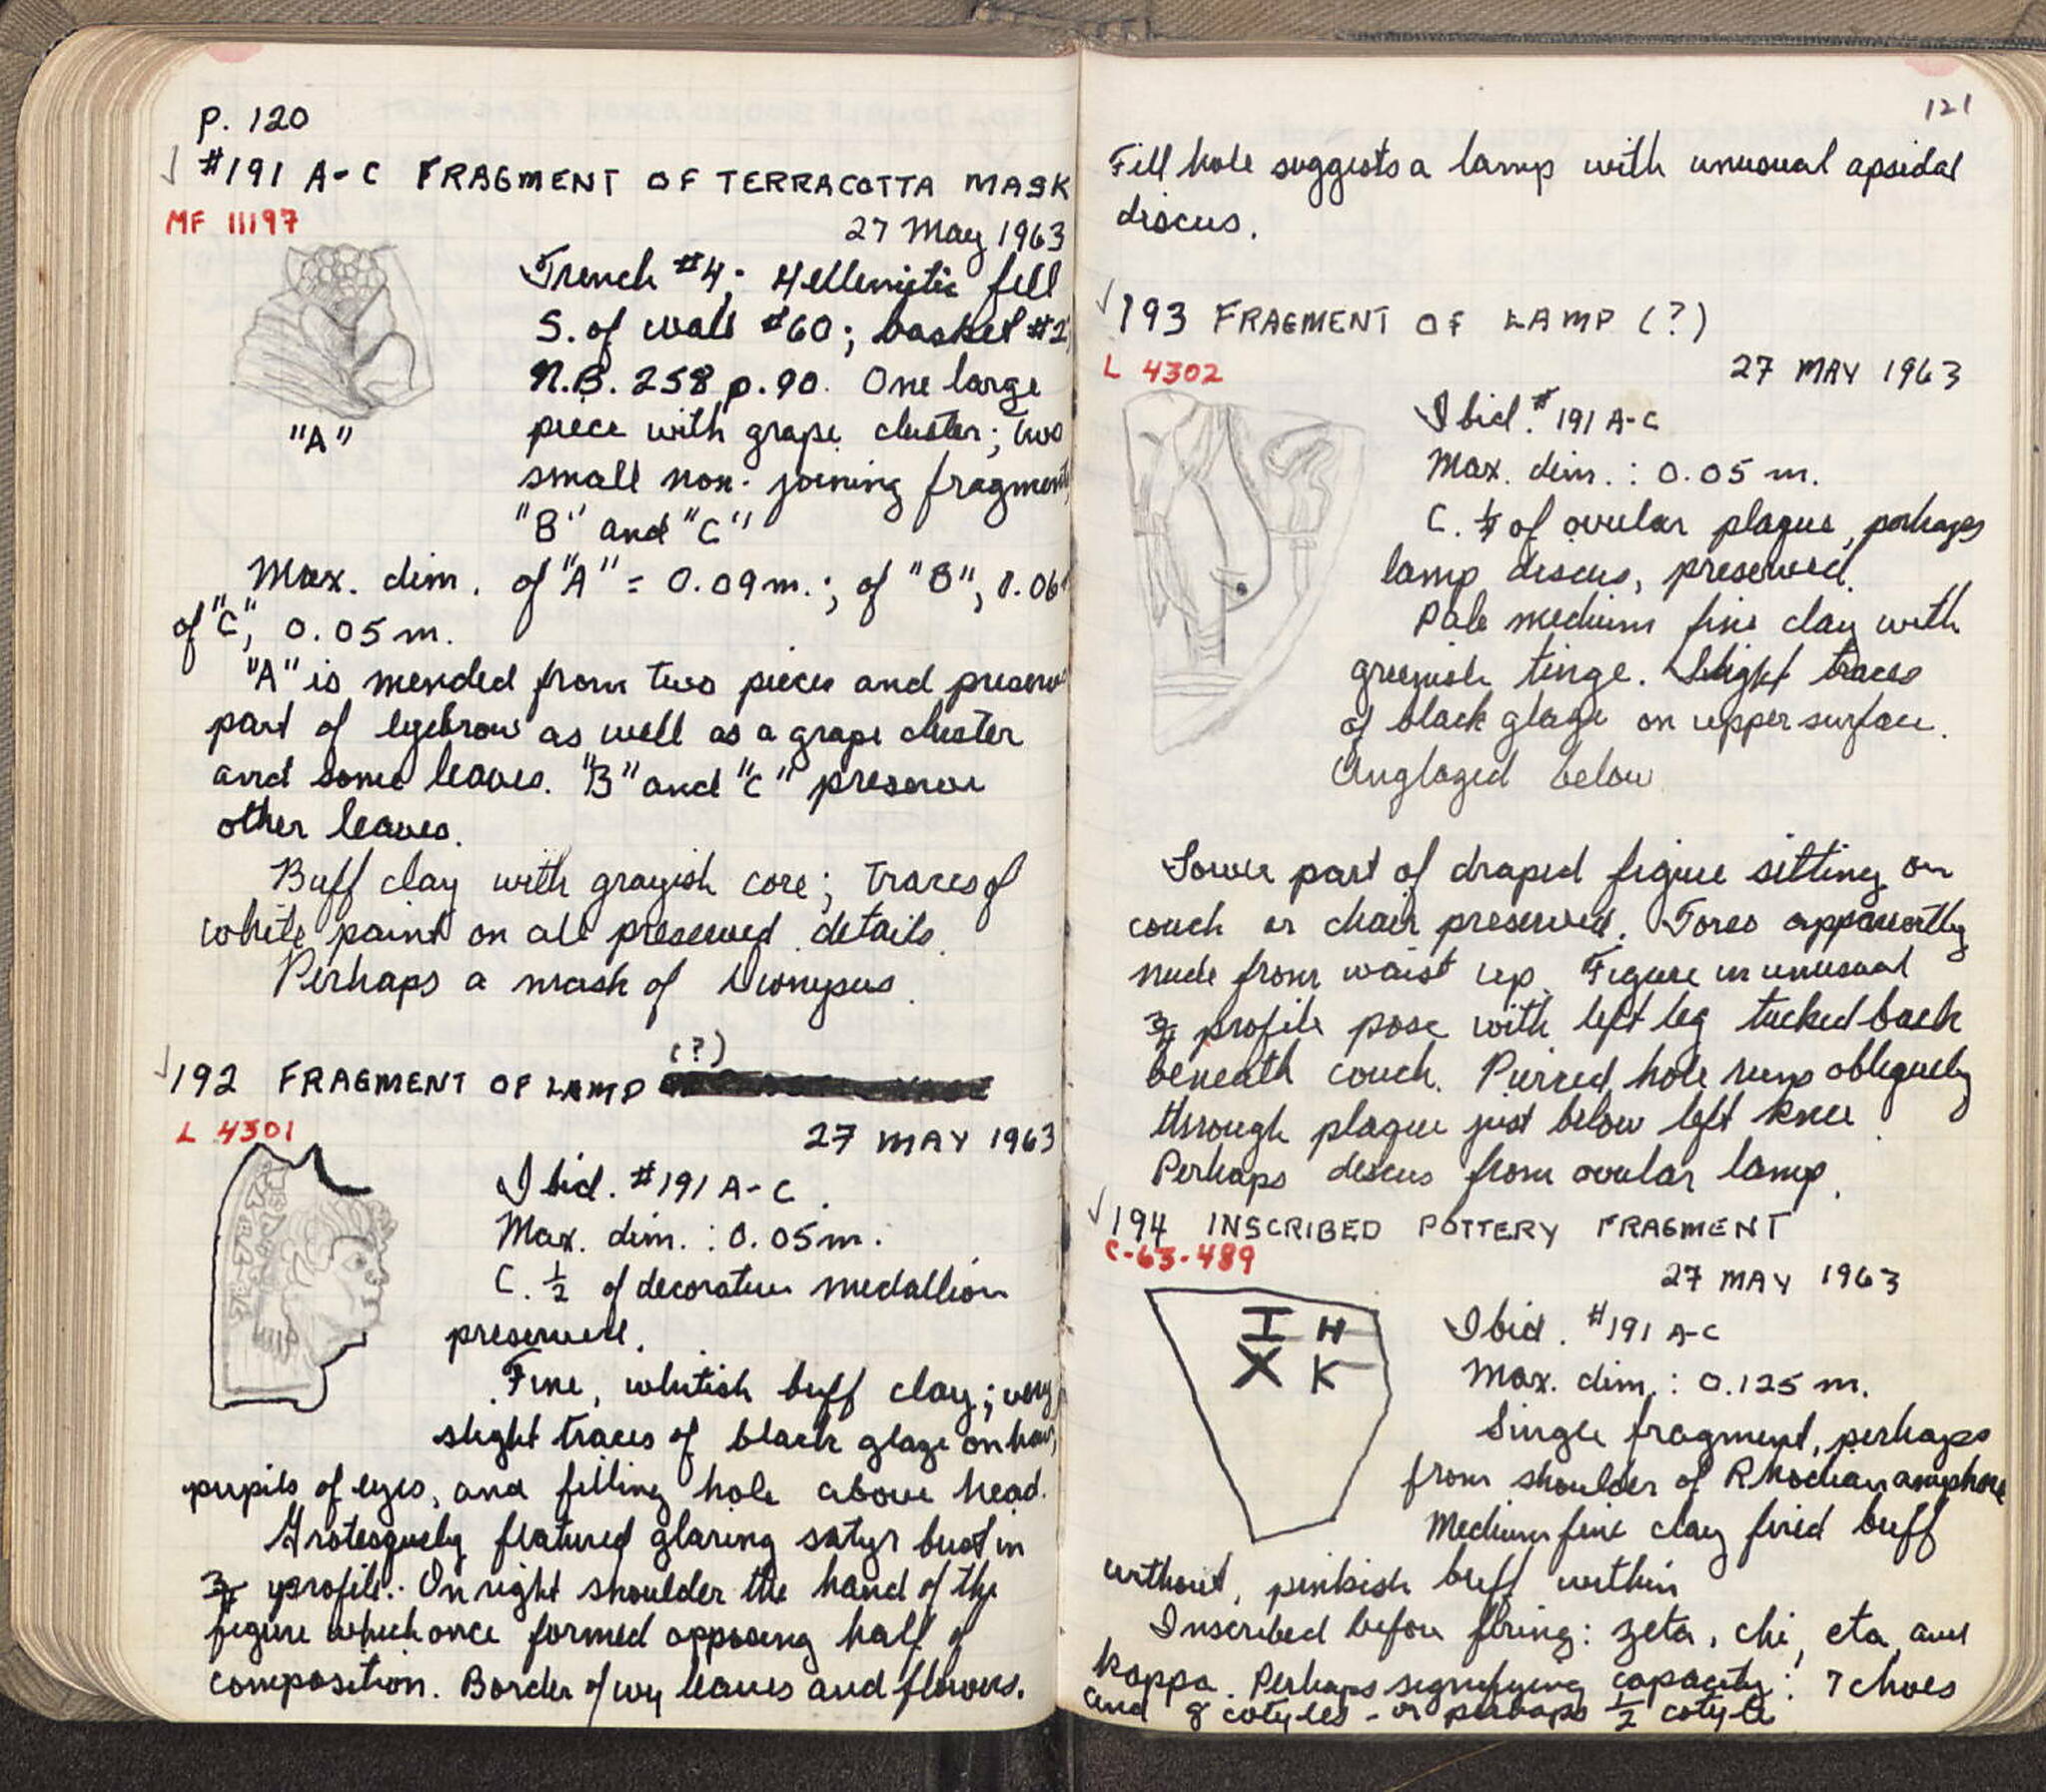 p. 120
#191 A-C FRAGMENT OF TERRACOTTA MASK
MF 11197
27 May 1963
Trench #4; Hellenistic fill
S. of wall #60; basket #2
N.B. 258 p. 90. One large
piece with grape cluster; two
small non-joining fragments
"B" and "C"
"A"
Max. dim. of "A" = 0.09 m.; of "B", 0.06
of "C", 0.05 m.
"A" is mended from two pieces and preserv
part of eyebrow as well as a grape cluster
and some leaves. "B" and "C" preserve
other leaves.
Buff clay with grayish core; traces of
white paint on all preserved details.
Perhaps a mask of Dionysus.
192 FRAGMENT OF LAMP (?)
L 4301
27 MAY 1963
Ibid. #191 A-C.
Max. dim.: 0.05 m.
C. 1/2 of decorative medallion
preserved.
Fine, whitish buff clay; very
slight traces of black glaze on hair,
pupils of eyes, and filling hole above head.
Grotesquely featured glaring satyr bust in
3/4 profile. On right shoulder the hand of the
figure which once formed opposing half of
composition. Border of ivy leaves and flowers.
121
Fill hole suggests a lamp with unusual apsidal
discus.
193 FRAGMENT OF LAMP (?)
L 4302
27 MAY 1963
Ibid. #191 A-C
Max. dim.: 0.05 m.
C. of ovular plaque, perhaps
lamp discus, preserved.
Pale medium fine clay with
greenish tinge. Slight traces
of black glaze on upper surface.
Unglazed below
Lower part of draped figure sitting on
couch or chair preserved. Torso apparently
nude from waist up. Figure in unusual
3/4 profile pose with left leg tucked back
beneath couch. Pierced hole runs obliquely
through plaque just below left knee.
Perhaps discus from ovular lamp.
194 INSCRIBED POTTERY FRAGMENT
C-63-489
27 MAY 1963
I H
X K
Ibid. #191 A-C
Max. dim.: 0.125 m.
Single fragment, perhaps
from shoulder of Rhodian amphora
Medium fine clay fired buff
without, pinkish buff within
Inscribed before firing: zeta, chi, eta, and
kappa. Perhaps signifying capacity: 7 choes
and 8 cotyles - or perhaps 1/2 cotyle